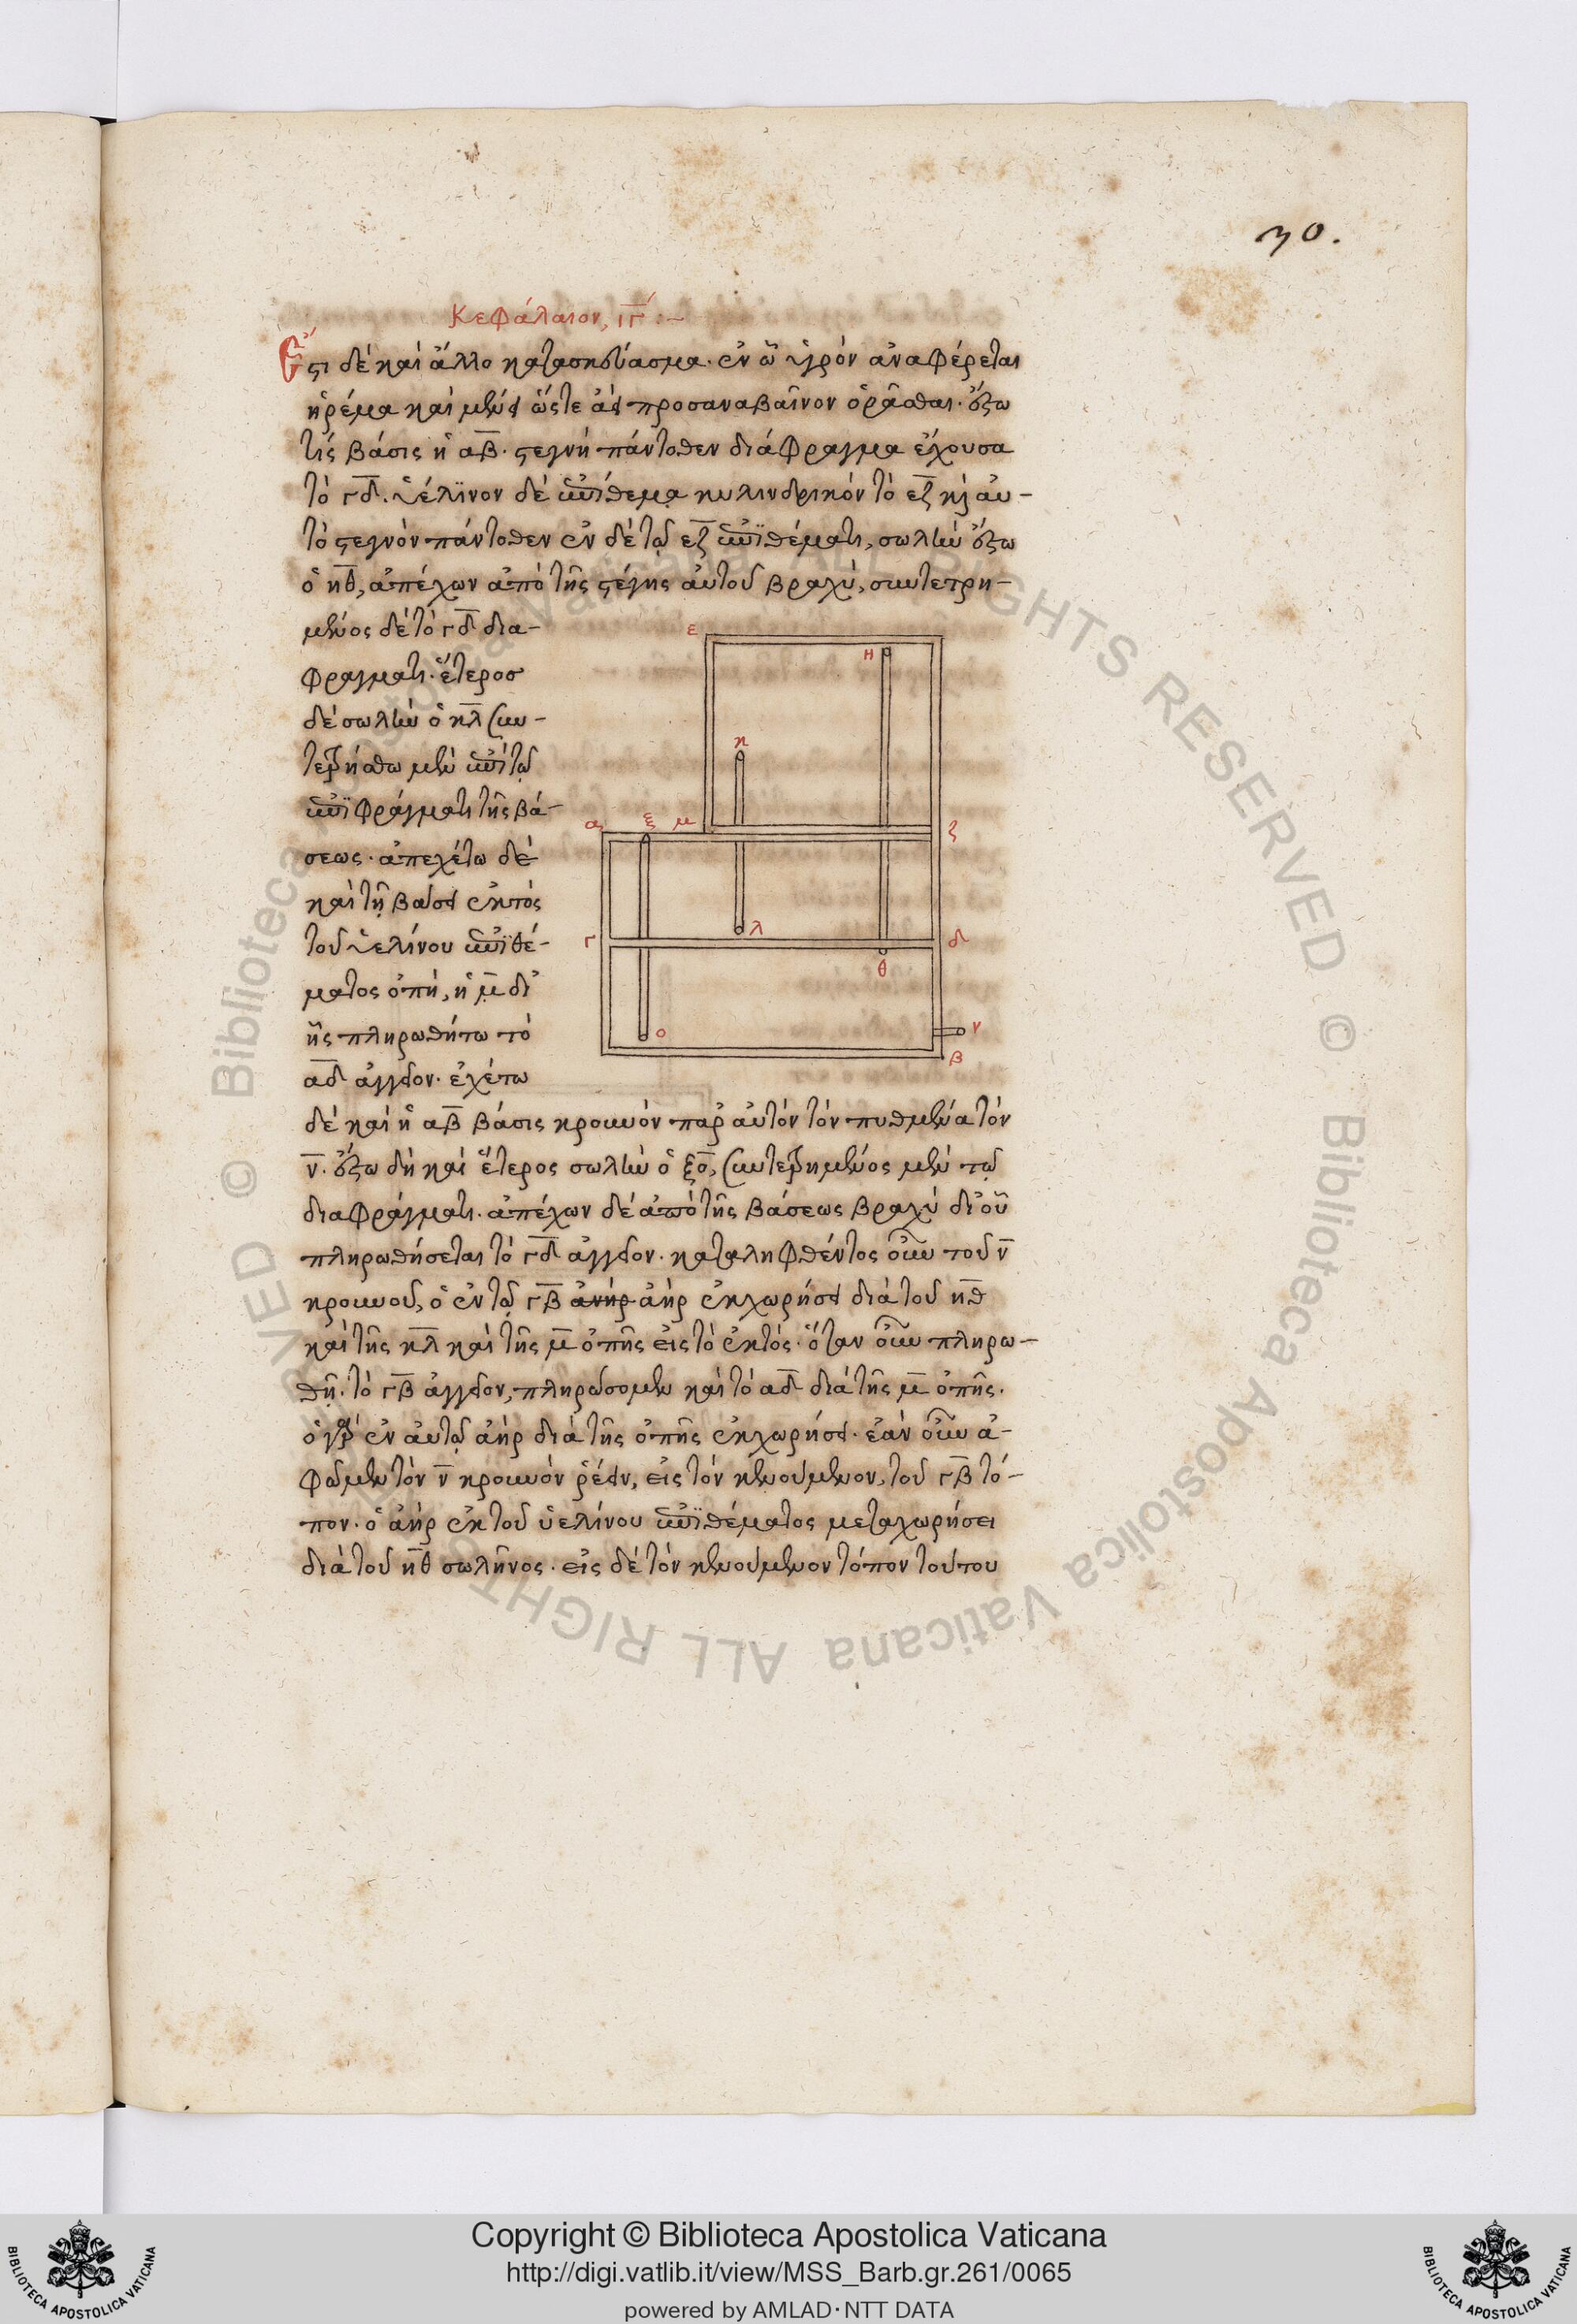 30.
Κεφάλαιον, ιγ´ :~
Ἔστι δὲ καὶ ἄλλο κατασκεύασμα· ἐν ᾧ ὑγρὸν ἀναφέρεται
ἠρέμα καὶ μένει ὥστε ἀεὶ προσαναβαῖνον ὁρᾶσθαι· ἔστω
τίς βάσις ἡ αβ· στεγνὴ πάντοθεν διάφραγμα ἔχουσα
τὸ γδ. ὑέλϊνον δὲ ἐπίθεμα κυλινδρικὸν τὸ εζ καὶ αὐ-
τὸ στεγνὸν πάντοθεν ἐν δὲ τῷ εζ ἐπϊθέματι, σωλὴν ἔστω
ὁ ηθ, ἀπέχων ἀπὸ τῆς στέγης αὐτοῦ βραχὺ, συντετρη-
μένος δὲ τὸ γδ δια-
φραγματι· ἕτερος
δὲ σωλὴν ὁ κλ συν-
τετρήσθω μὲν ἐπὶ τῷ
ἐπϊφράγματι τῆς βά-
σεως· ἀπεχέτω δὲ
καὶ τῇ βάσει ἐκτὸς
τοῦ ὑελίνου ἐπϊθέ-
ματος ὀπὴ, ἡ μ δι᾽
ἧς πληρωθήτω τὸ
αδ ἀγγεῖον· ἐχέτω
δὲ καὶ ἡ αβ βάσις κρουνὸν παρ᾽ αὐτὸν τὸν πυθμένα τὸν
ν· ἔστω δὴ καὶ ἕτερος σωλὴν ὁ ξο, συντετρημένος μὲν τῷ
διαφράγματι· ἀπέχων δὲ ἀπὸ τῆς βάσεως βραχὺ δι᾽ οὗ
πληρωθήσεται τὸ γδ ἀγγεῖον· καταληφθέντος οὖν τοῦ ν
κρουνοῦ, ὁ ἐν τῷ γβ ἀνὴρ ἀὴρ ἐκχωρήσει διὰ τοῦ ηθ
καὶ τῆς κλ καὶ τῆς μ ὀπῆς εἰς τὸ ἐκτός· ὅταν οὖν πληρω-
θῇ· τὸ γβ ἀγγεῖον, πληρώσομεν καὶ τὸ αδ διὰ τῆς μ ὀπῆς·
ὁ γὰρ ἐν αὐτῷ ἀὴρ διὰ τῆς ὀπῆς ἐκχωρήσει· ἐὰν οὖν ἀ-
φῶμεν τὸν ν κρουνὸν ῥέειν, εἰς τὸν κενούμενον, τοῦ γβ τό-
πον· ὁ ἀὴρ ἐκ τοῦ ὑελίνου ἐπϊθέματος μεταχωρήσει
διὰ τοῦ ηθ σωλῆνος· εἰς δὲ τὸν κενούμενον τόπον τούτου
ε
η
κ
α
ξ
μ
ζ
γ
λ
δ
θ
ο
ν
β
© Biblioteca Apostolica Vaticana ALL RIGHTS RESERVED © Biblioteca Apostolica Vaticana ALL RIGHTS RESERVED
Copyright © Biblioteca Apostolica Vaticana
http://digi.vatlib.it/view/MSS_Barb.gr.261/0065
powered by AMLAD·NTT DATA
BIBLIOTECA APOSTOLICA VATICANA
BIBLIOTECA APOSTOLICA VATICANA